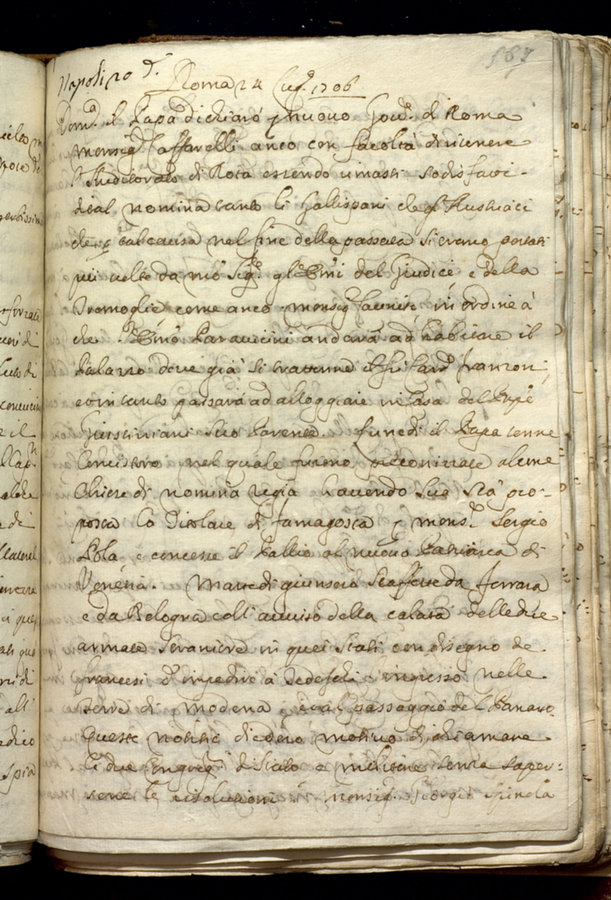 587
Napoli 20 d.º
Roma 24 Lug.º 1706
Dom.ª il Papa dichiarò p nuovo Gov.re di Roma
monsig.r Caffarelli anco con facoltà di ritenere
l'Auditorato di Rota essendo rimasti sodisfatti
di tal nomina tanto li Gallispani che gl'Austriaci
che p tal causa nel fine della passata si erano portati
più volte da N.ro Sig.re gl'Em.i del Giudice e della
Tromoglie come anco monsig.r in ordine à
che l'Em.o Paravicini andarà ad habitare il
Palazzo dove già si trattenne il Card.l
e in tanto passarà ad alloggiare in Casa del Prñpe
Giustiniani suo Parente. Lunedì il Papa tenne
Concistoro nel quale furono preconizate alcune
Chiese di nomina regia havendo Sua S.tà pro-
posta la Titolare di Famagosta p mons.r Sergio
Pola e concesse il Pallio al nuovo Patriarca di
Venezia. Martedì giunsero Staffette da Ferrara
e da Bologna coll'avviso della calata delle due
armate straniere in quei Stati con disegno de
francesi d'impedire à Tedeschi l'ingresso nelle
terre di Modena e il passaggio del Panaro.
Queste notitie diedero motivo di chiamare
le due Congreg.ni di stato e militare senza saper-
sene le risoluzioni e monsig.r Giorgio Spinola